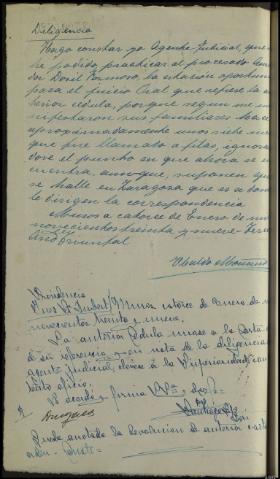 Diligencia
Hago constar yo Agente Judicial, que no
he podido practicar al procesado
Doril la citación oportuna
para el juicio Oral que expresa la an
terior cédula, porque según me ma
nifestaron sus familiares hace
aproximadamente unos siete me
que fue llamado a filas, ignoran
dose el punto en que ahora se en
cuentra, aunque, suponen que
se halle en Zaragoza que es a donde
le dirigen la correspondencia
Muros a catorce de Enero de mil
novecientos treinta y nueve. Tercer
Año Triunfal
Ubaldo
Providencia
Juez Sr. Muros catorce de Enero de mil
novecientos treinta y nueve.
La anterior cédula únase a la carta
de su referencia y con nota de la diligencia
agente judicial, elévese a la Superioridad con
atento oficio.
Lo acordó y firma S.Sª doy fe
Queda anotada la devolución de anterior carta